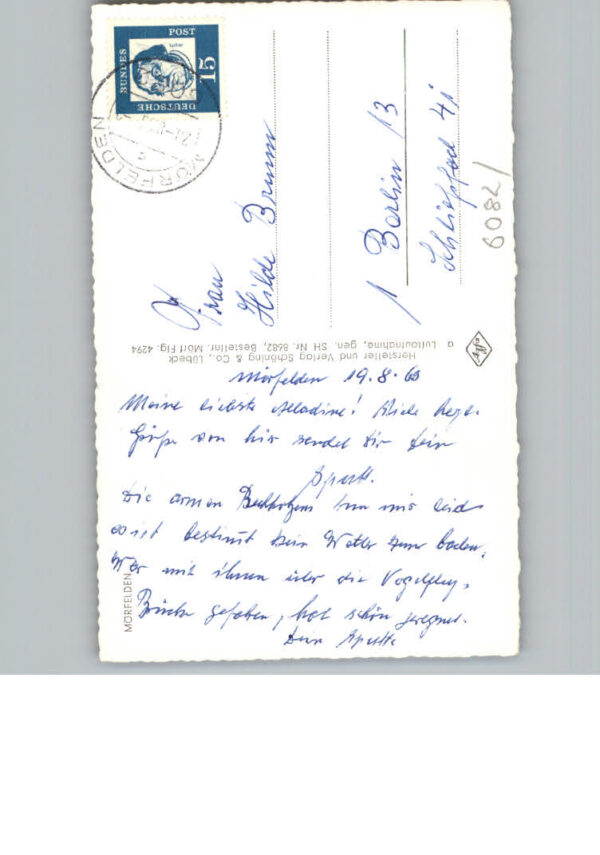 Mörfelden 19.8.63
Meine liebste Alladine! Viele
Grüße von hier sendet dir dein
Die armen tun mir leid
es ist bestimmt kein Wetter zum baden.
War mit ihnen über die
Brücke gefahren, hat schön geregnet.
Dein
MÖRFELDEN
Hersteller und Verlag Schöning & Co., Lübeck
a Luftaufnahme, gen. SH Nr. 8682, Bestellnr. Mörf Flg. 4294
Frau
Hilde Brumm
1 Berlin 13
Schleipfad 4i
6082/
DEUTSCHE
BUNDES
POST
15
MÖRFELDEN